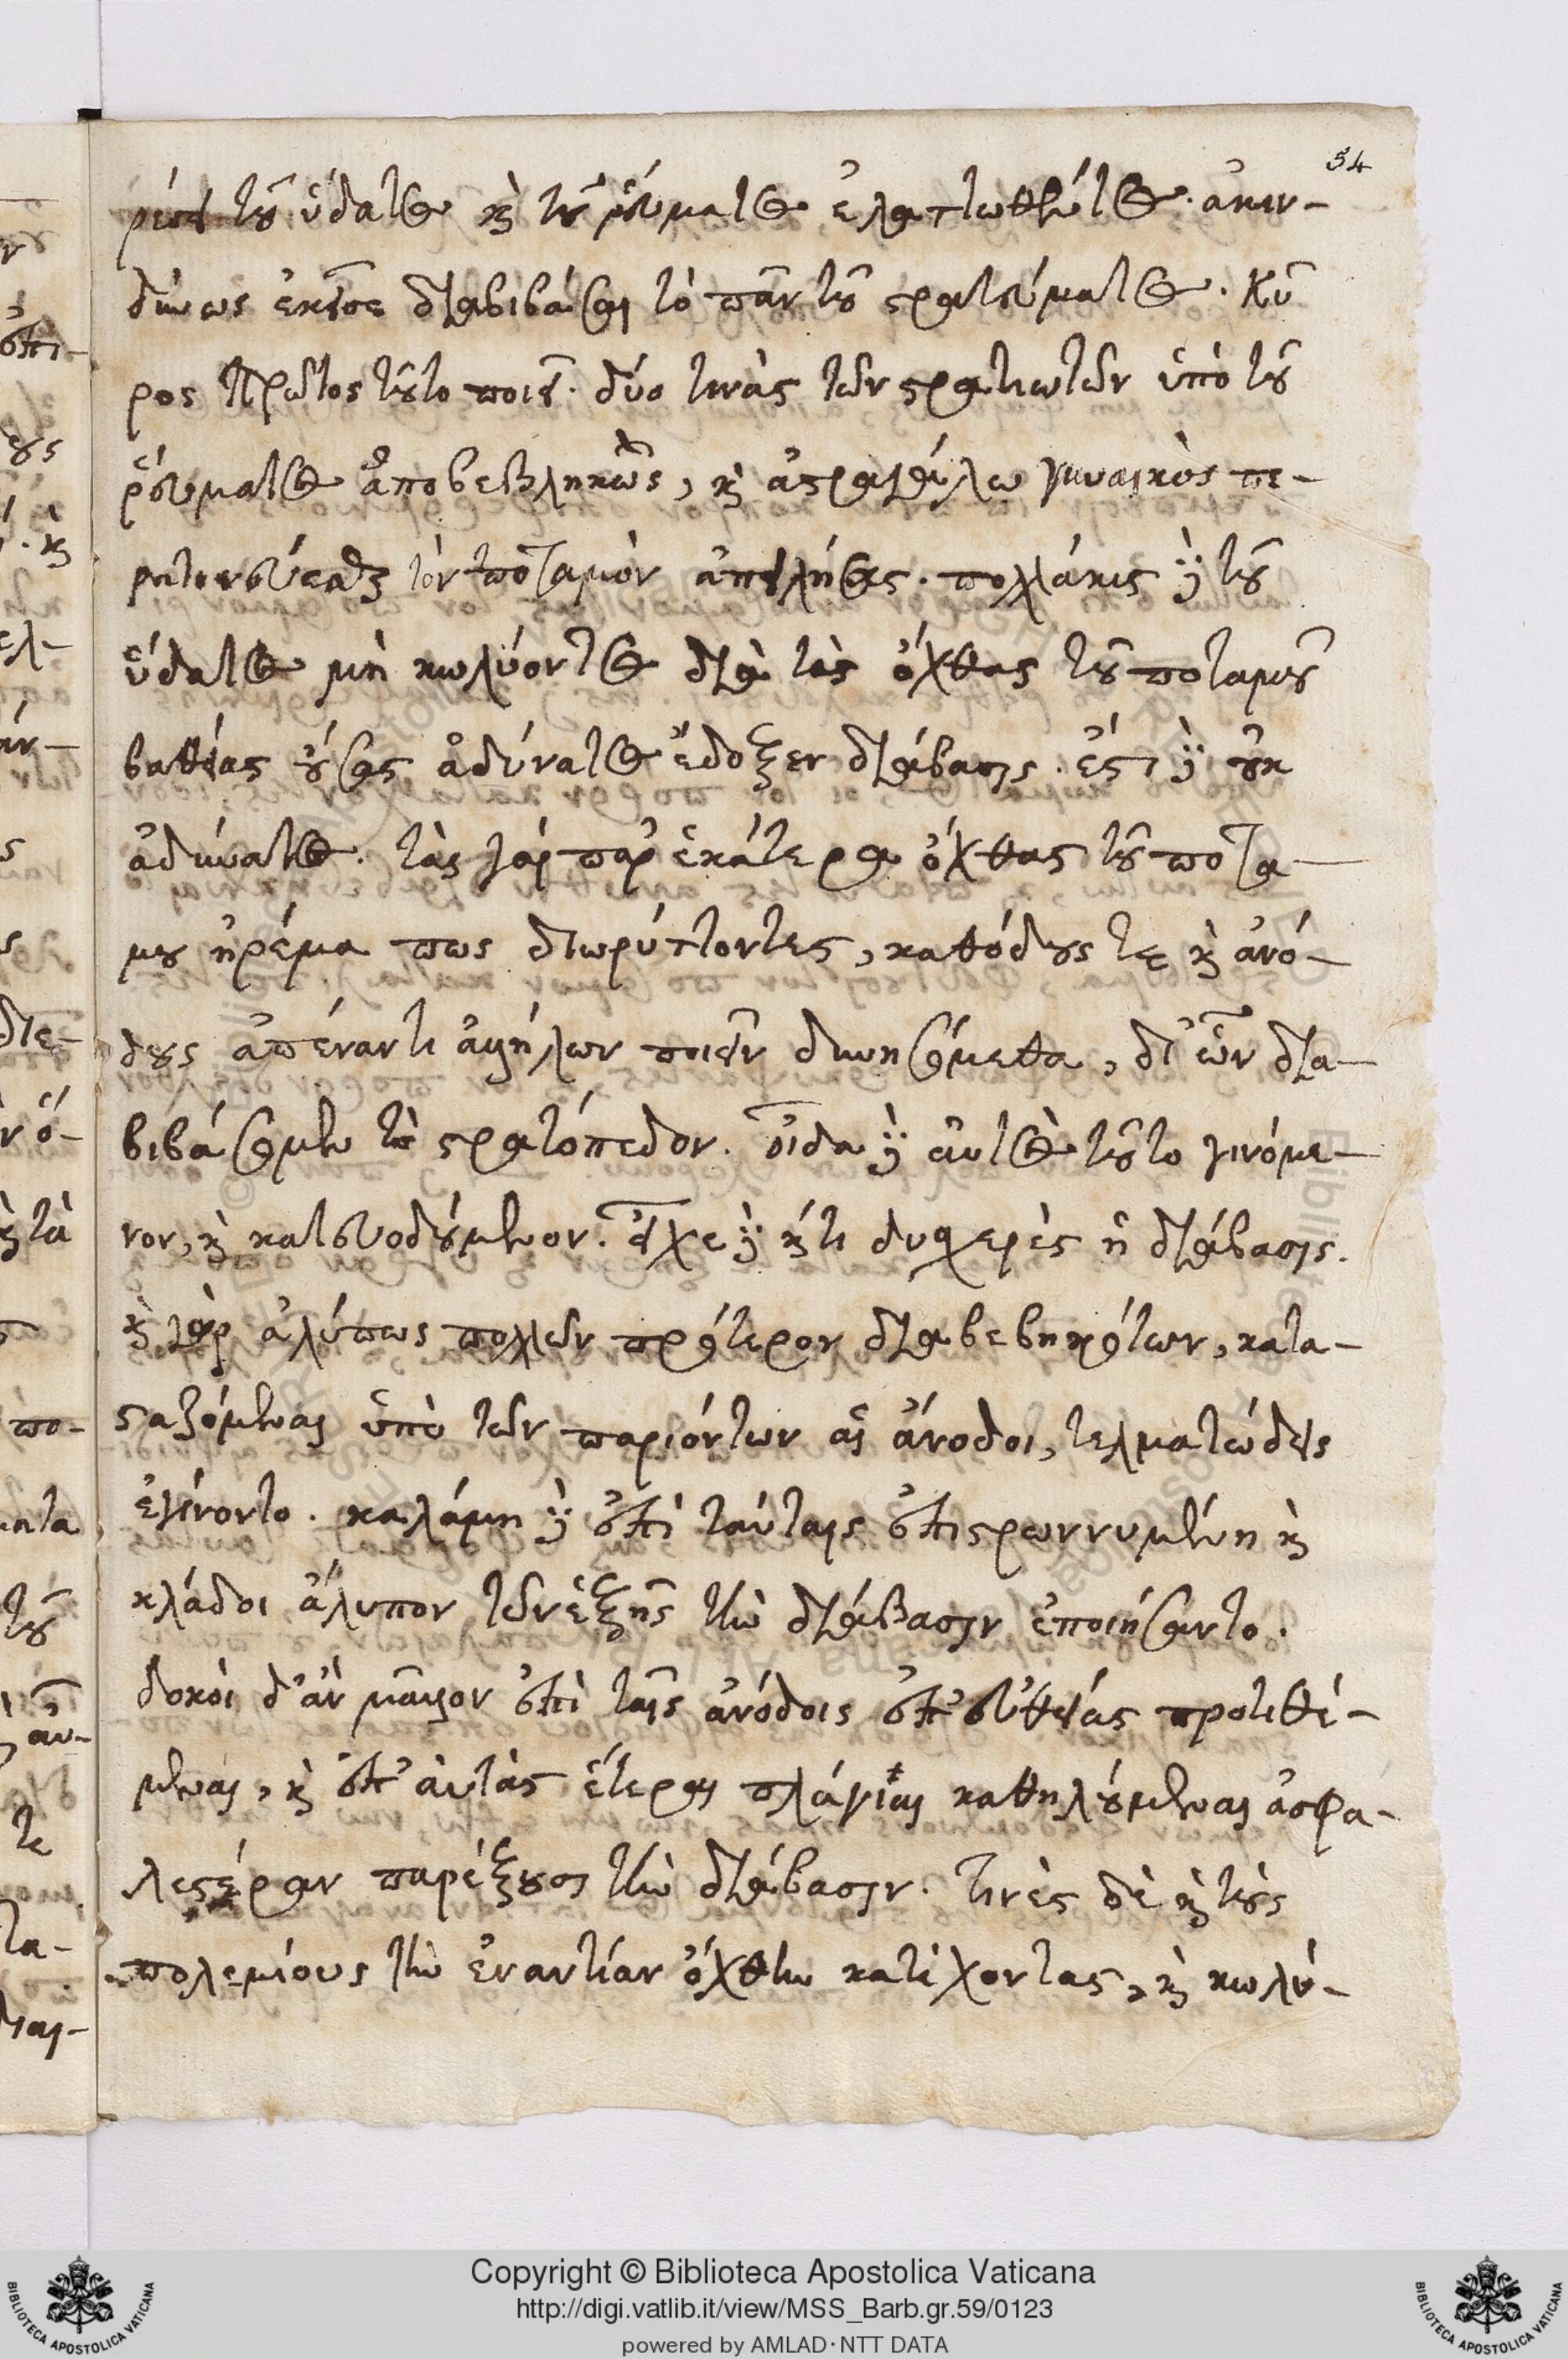 54
ρίσει τοῦ ὕδατος καὶ τοῦ ῥεύματος ἐλαττωθέντος. ἀκιν-
δύνως ἐκεῖσε διαβιβάσαι τὸ πᾶν τοῦ στρατεύματος. Κῦ
ρος πρῶτος τοῦτο ποιεῖ. δύο τινὰς τῶν στρατιωτῶν ὑπὸ τοῦ
ῥεύματος ἀποβεβληκὼς, καὶ ἀστραγάλω γυναικὸς πε-
ρατοῦσθαι τὸν ποταμὸν ἀπειλήσας. πολλάκις δὲ τοῦ
ὕδατος μὴ κωλύοντος διὰ τὰς ὄχθας τοῦ ποταμοῦ
βαθείας οὔσας ἀδύνατος ἔδοξεν διάβασις. ἔστι δὲ οὐκ
ἀδύνατος. τὰς γάρ παρ' ἑκάτερα ὄχθας τοῦ ποτα-
μου ἠρέμα πως διωρύττοντες, καθόδους τε καὶ ἀνό-
δους ἀπέναντι ἀλλήλων ποιεῖν δυνησόμεθα, δι' ὧν δια-
βιβάσομεν τὸ στρατόπεδον. οἶδα δὲ αὐτὸς τοῦτο γινόμε-
νον, καὶ κατευοδούμενον. εἶχε δὲ καί τι δυσχερὲς ἡ διάβασις.
καὶ γὰρ ἀλύπως πολλῶν πρότερον διαβεβηκότων, κατα-
σταζόμεναι ὑπὸ τῶν παριόντων αἱ ἄνοδοι, τελματώδεις
ἐγίνοντο. καλάμη δὲ ἐπὶ ταύταις ἐπιστρωννυμένη καὶ
κλάδοι ἄλυπον τῶν ἑξῆς τὴν διάβασιν ἐποιήσαντο.
δοκοὶ δ' ἂν μᾶλλον ἐπὶ ταῖς ἀνόδοις ἐπ' εὐθείας προτιθέ-
μεναι, καὶ ἐπ' αὐτὰς ἕτεραι πλάγιαι καθηλούμεναι ἀσφα-
λεστέραν παρέξουσι τὴν διάβασιν. τινὲς δὲ καὶ τοὺς
πολεμίους τὴν ἐναντίαν ὄχθην κατέχοντας, καὶ κωλύ-
Copyright © Biblioteca Apostolica Vaticana
http://digi.vatlib.it/view/MSS_Barb.gr.59/0123
powered by AMLAD·NTT DATA